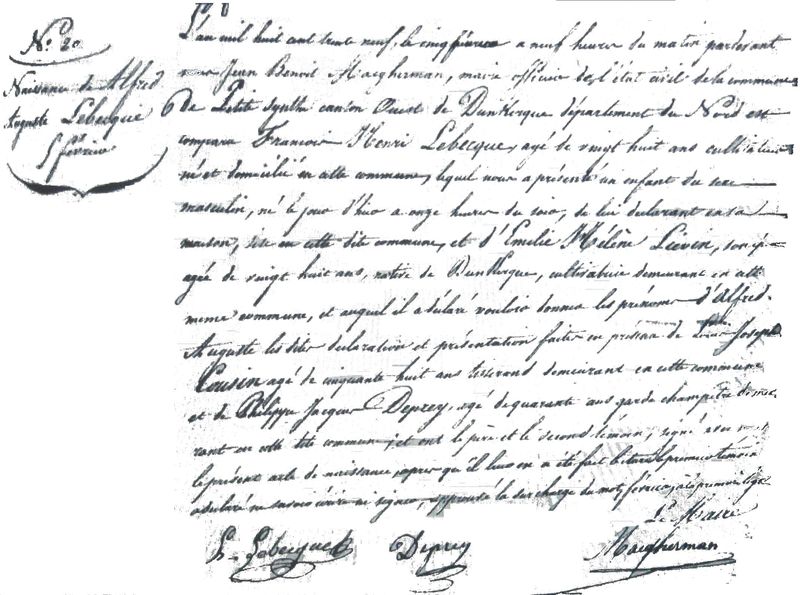 N.º 20
Naissance de Alfred
Auguste Lebecque
5 février
L'an mil huit cent trente neuf, le cinq février a neuf heures du matin pardevant
nous Jean Benoit Macgherman, maire officier de l'état civil de la commune
de Petite Synthe canton Ouest de Dunkerque département du Nord est
comparu François Henri Lebecque, agé de vingt huit ans cultivateur
né et domicilié en cette commune, lequel nous a présenté un enfant du sexe
masculin, né le jour d'hier a onze heures du soir, de lui déclarant en sa
maison, sise en cette dite commune, et d'Emilie Hélène Liévin, son
agée de vingt huit ans, native de Dunkerque, cultivatrice demeurant en cette
meme commune, et auquel il a déclaré vouloir donner les prénoms d'Alfred
Auguste les dites déclaration et présentation faites en présence de Joseph
Cousin agé de cinquante huit ans tisserand demeurant en cette commune
et de Philippe Jacques Deprey, agé de quarante ans garde champêtre demeu
rant en cette dite commune; et ont le père et le second témoin, signé avec nous
le présent acte de naissance, après qu'il leur en a été fait lecture le premier témoin
a déclaré ne savoir écrire ni signer, approuvé la surcharge du mot février, a la premiere ligne
Le Maire
h. Lebecque Deprey Macgherman